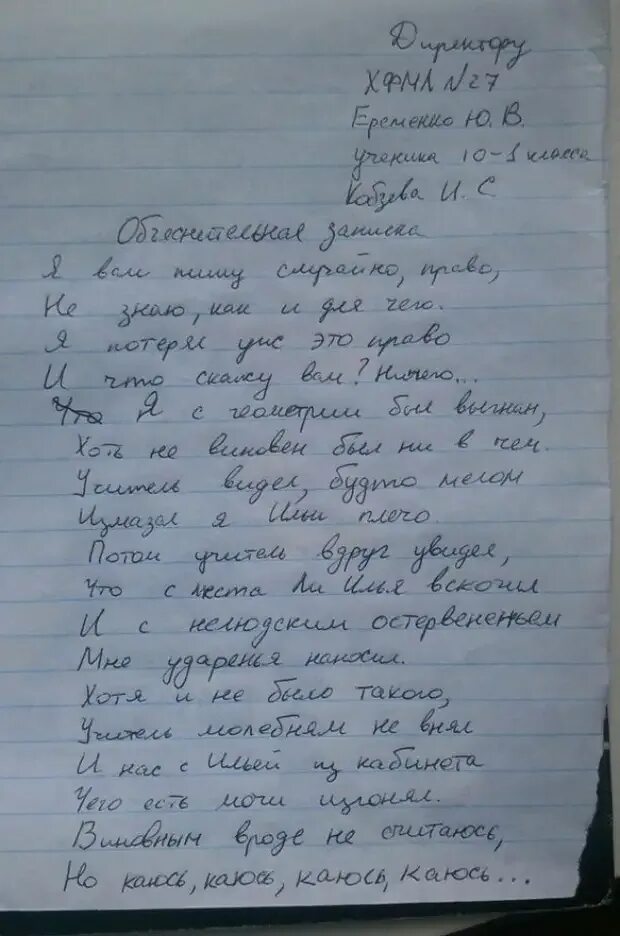 Директору
ХФМЛ №27
Еременко Ю. В.
ученика 10-1 класса
Кобзева И. С
Объяснительная записка
Я вам пишу случайно, право,
Не знаю, как и для чего.
Я потерял уж это право
И что скажу вам? Ничего...
Что Я с геометрии был выгнан,
Хоть не виновен был ни в чем.
Учитель видел, будто мелом
Измазал я Ильи плечо.
Потом учитель вдруг увидел,
Что с места Ли Илья вскочил
И с нелюдским остервененьем
Мне ударенья наносил.
Хотя и не было такого,
Учитель молебням не внял
И нас с Ильей из кабинета
Чего есть мочи изгонял.
Виновным вроде не считаюсь,
Но каюсь, каюсь, каюсь, каюсь...